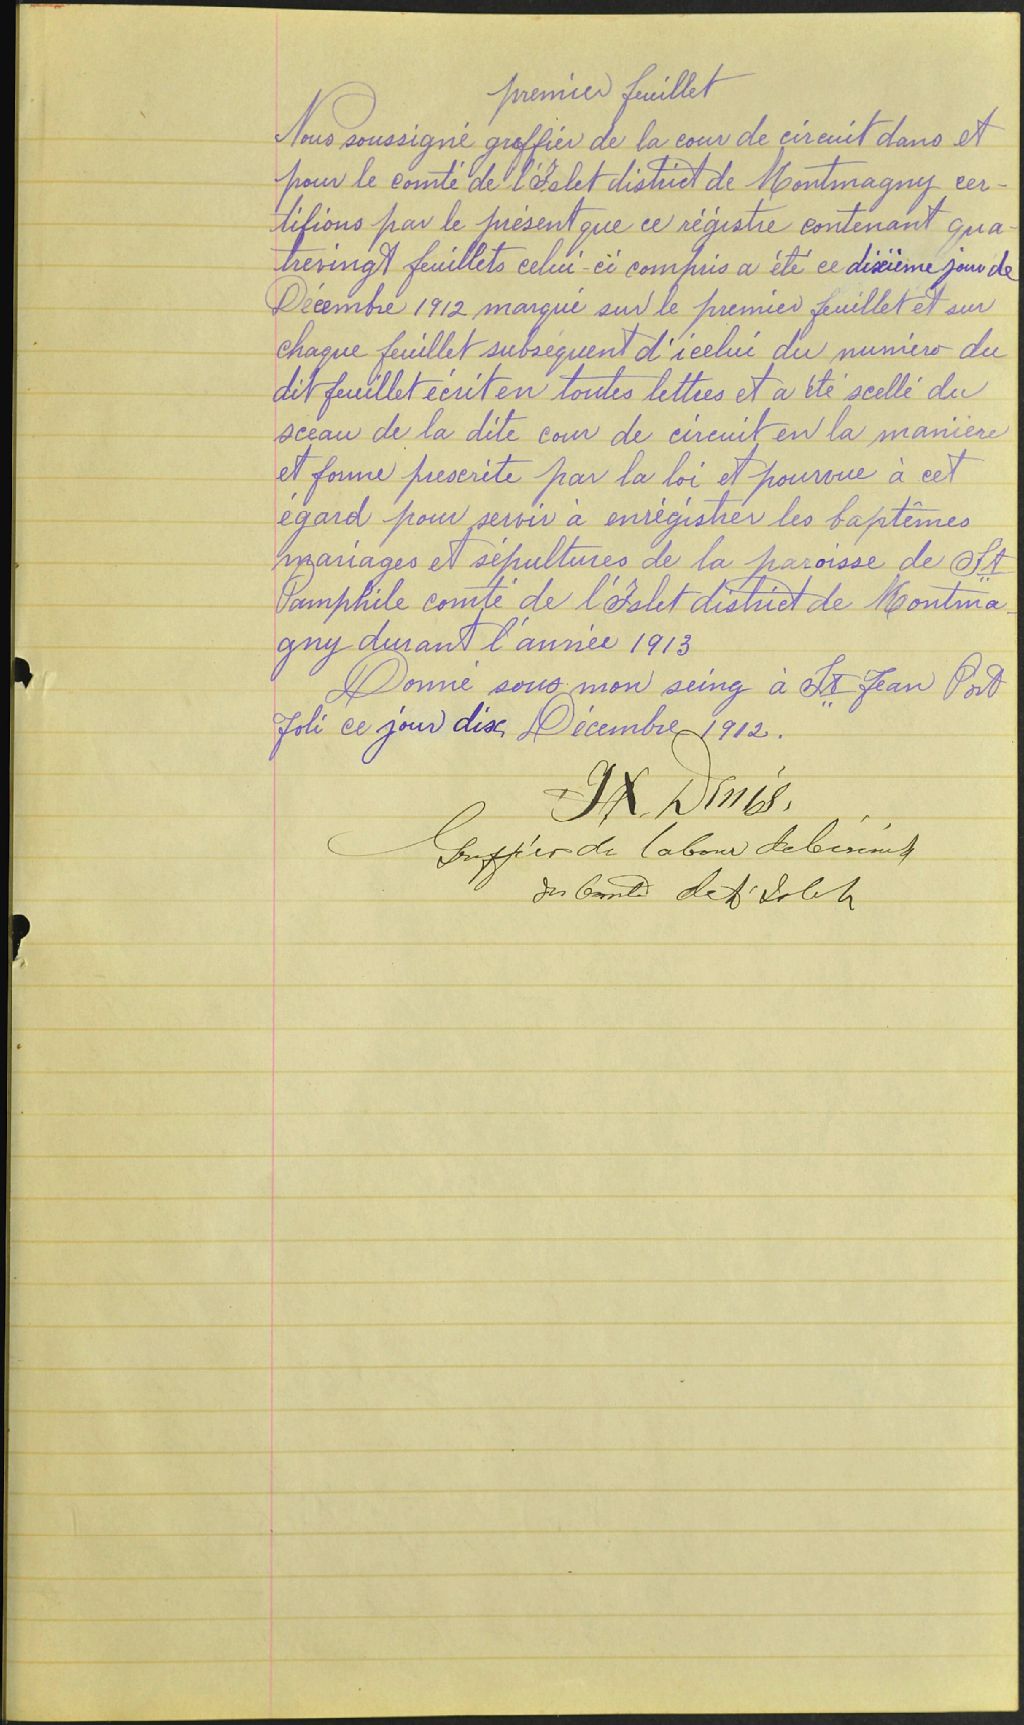 premier feuillet
Nous soussigné greffier de la cour de circuit dans et
pour le comté de l'Islet district de Montmagny cer-
tifions par le présent que ce régistre contenant qua-
trevingt feuillets celui-ci compris a été ce dixième jour de
Décembre 1912 marqué sur le premier feuillet et sur
chaque feuillet subséquent d'icelui du numéro du
dit feuillet écrit en toutes lettres et a été scellé du
sceau de la dite cour de circuit en la manière
et forme prescrite par la loi et pourvue à cet
égard pour servir à enrégistrer les baptêmes
mariages et sépultures de la paroisse de St
Pamphile comté de l'Islet district de Montma-
gny durant l'année 1913
Donné sous mon seing à St Jean Port
Joli ce jour dix Décembre 1912.
JX. Denis.
Greffier de la Cour de Circuit
du Comté de l'Islet